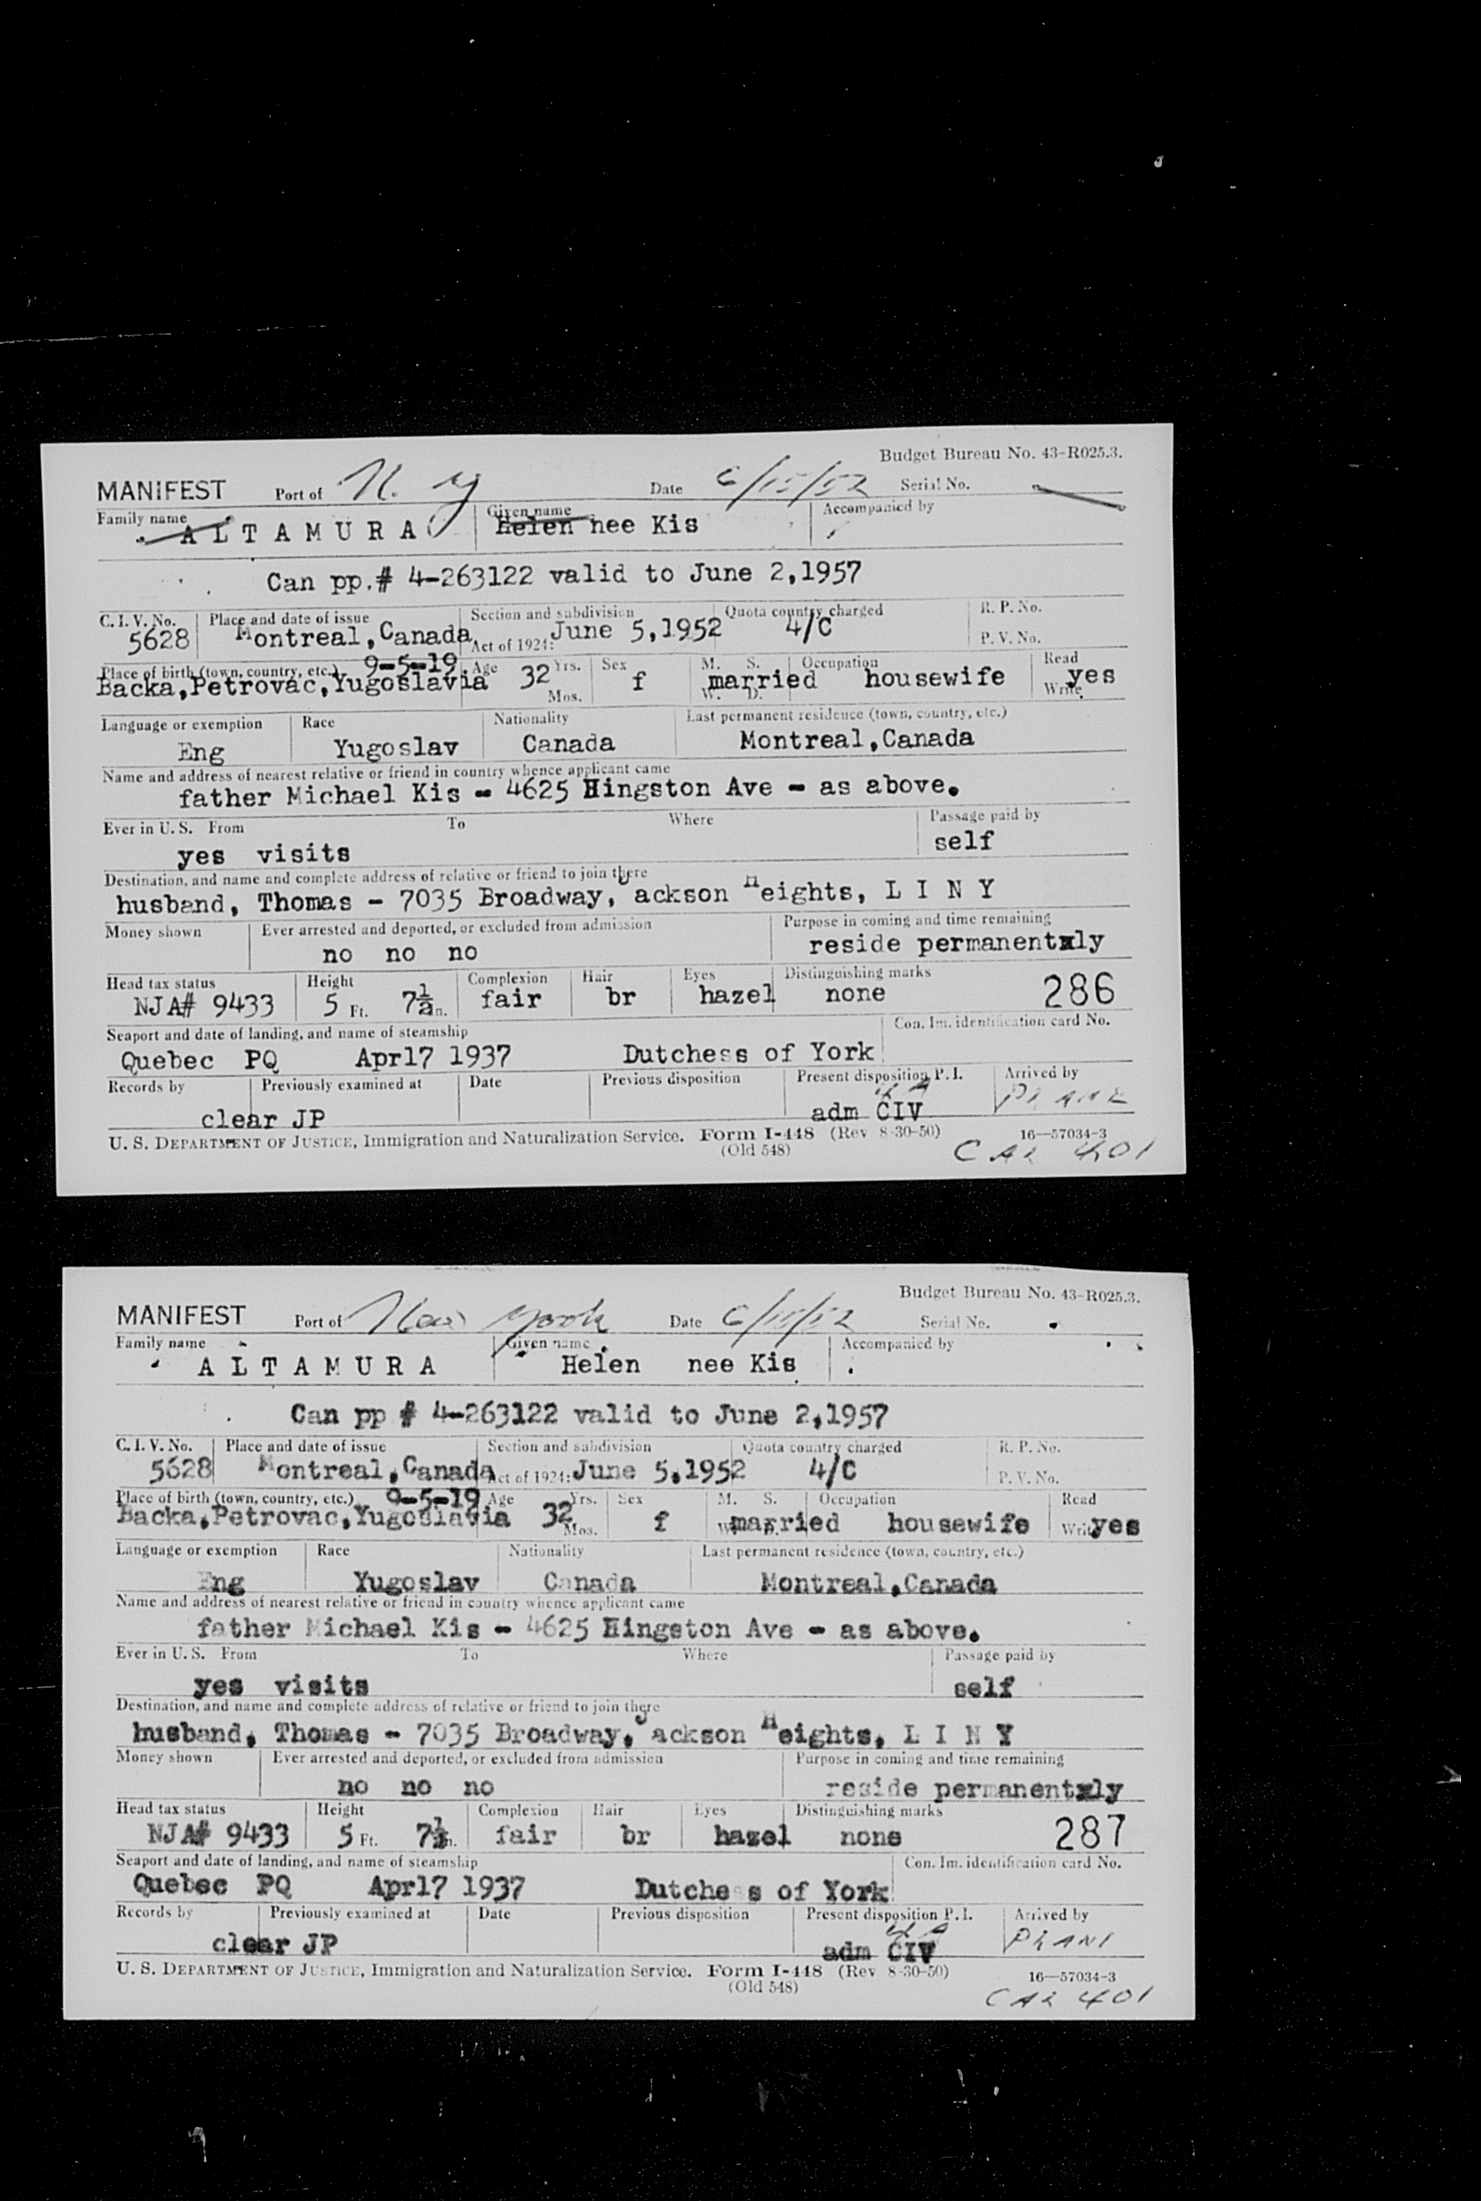 Budget Bureau No. 43-R025.3.
MANIFEST Port of N. Y Date 6/15/52 Serial No.
Family name Given name Accompanied by
ALTAMURA Helen nee Kis
Can pp.# 4-263122 valid to June 2,1957
C. I. V. No. Place and date of issue Section and subdivision Quota country charged R. P. No.
5628 Montreal,Canada Act of 1924: June 5,1952 4/C P. V. No.
Place of birth (town, country, etc.) 9-5-19 Age 32 Yrs. Sex M. S. Occupation Read
Backa,Petrovac,Yugoslavia Mos. f married W. D. housewife Write yes
Language or exemption Race Nationality Last permanent residence (town, country, etc.)
Eng Yugoslav Canada Montreal,Canada
Name and address of nearest relative or friend in country whence applicant came
father Michael Kis - 4625 Hingston Ave - as above.
Ever in U. S. From To Where Passage paid by
yes visits self
Destination, and name and complete address of relative or friend to join there
husband, Thomas - 7035 Broadway, Jackson Heights, L I N Y
Money shown Ever arrested and deported, or excluded from admission Purpose in coming and time remaining
no no no reside permanentxly
Head tax status Height Complexion Hair Eyes Distinguishing marks
NJA# 9433 5 Ft. 7½ In. fair br hazel none 286
Seaport and date of landing, and name of steamship Con. Im. identification card No.
Quebec PQ Apr17 1937 Dutchess of York
Records by Previously examined at Date Previous disposition Present disposition P. I. Arrived by
clear JP adm CIV PLANE
U. S. DEPARTMENT OF JUSTICE, Immigration and Naturalization Service. Form I-448 (Rev 8-30-50) 16—57034-3
(Old 548) 401
Budget Bureau No. 43-R025.3.
MANIFEST Port of New York Date 6/15/52 Serial No.
Family name Given name Accompanied by
ALTAMURA Helen nee Kis
Can pp # 4-263122 valid to June 2,1957
C. I. V. No. Place and date of issue Section and subdivision Quota country charged R. P. No.
5628 Montreal,Canada Act of 1924: June 5,1952 4/C P. V. No.
Place of birth (town, country, etc.) 9-5-19 Age 32 Yrs. Sex M. S. Occupation Read
Backa,Petrovac,Yugoslavia Mos. f married W. D. housewife Write yes
Language or exemption Race Nationality Last permanent residence (town, country, etc.)
Eng Yugoslav Canada Montreal,Canada
Name and address of nearest relative or friend in country whence applicant came
father Michael Kis - 4625 Hingston Ave - as above.
Ever in U. S. From To Where Passage paid by
yes visits self
Destination, and name and complete address of relative or friend to join there
husband, Thomas - 7035 Broadway, Jackson Heights, L I N Y
Money shown Ever arrested and deported, or excluded from admission Purpose in coming and time remaining
no no no reside permanentxly
Head tax status Height Complexion Hair Eyes Distinguishing marks
NJA# 9433 5 Ft. 7½ In. fair br hazel none 287
Seaport and date of landing, and name of steamship Con. Im. identification card No.
Quebec PQ Apr17 1937 Dutchess of York
Records by Previously examined at Date Previous disposition Present disposition P. I. Arrived by
clear JP adm CIV
U. S. DEPARTMENT OF JUSTICE, Immigration and Naturalization Service. Form I-448 (Rev 8-30-50) 16—57034-3
(Old 548) 401